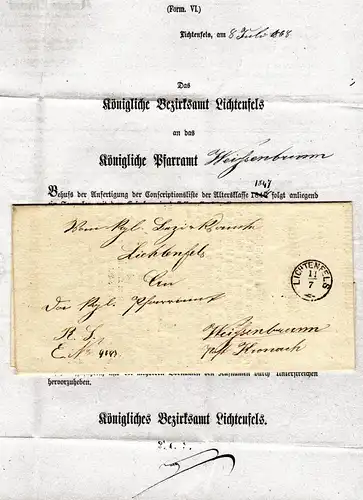 (Form. VI.)
Lichtenfels, am 8 Juli 1868
Das
Königliche Bezirksamt Lichtenfels
an das
Königliche Pfarramt Weissenbrunn
1847
Behufs der Anfertigung der Conscriptionsliste der Altersklasse folgt anliegend
Vom Kgl. Bezirksamt
Lichtenfels
An
Das Kgl. Pfarramt
R. S.
E. No
Weissenbrunn
Post Kronach
LICHTENFELS
11
7
durch Unterstreichen
hervorzuheben.
Königliches Bezirksamt Lichtenfels.